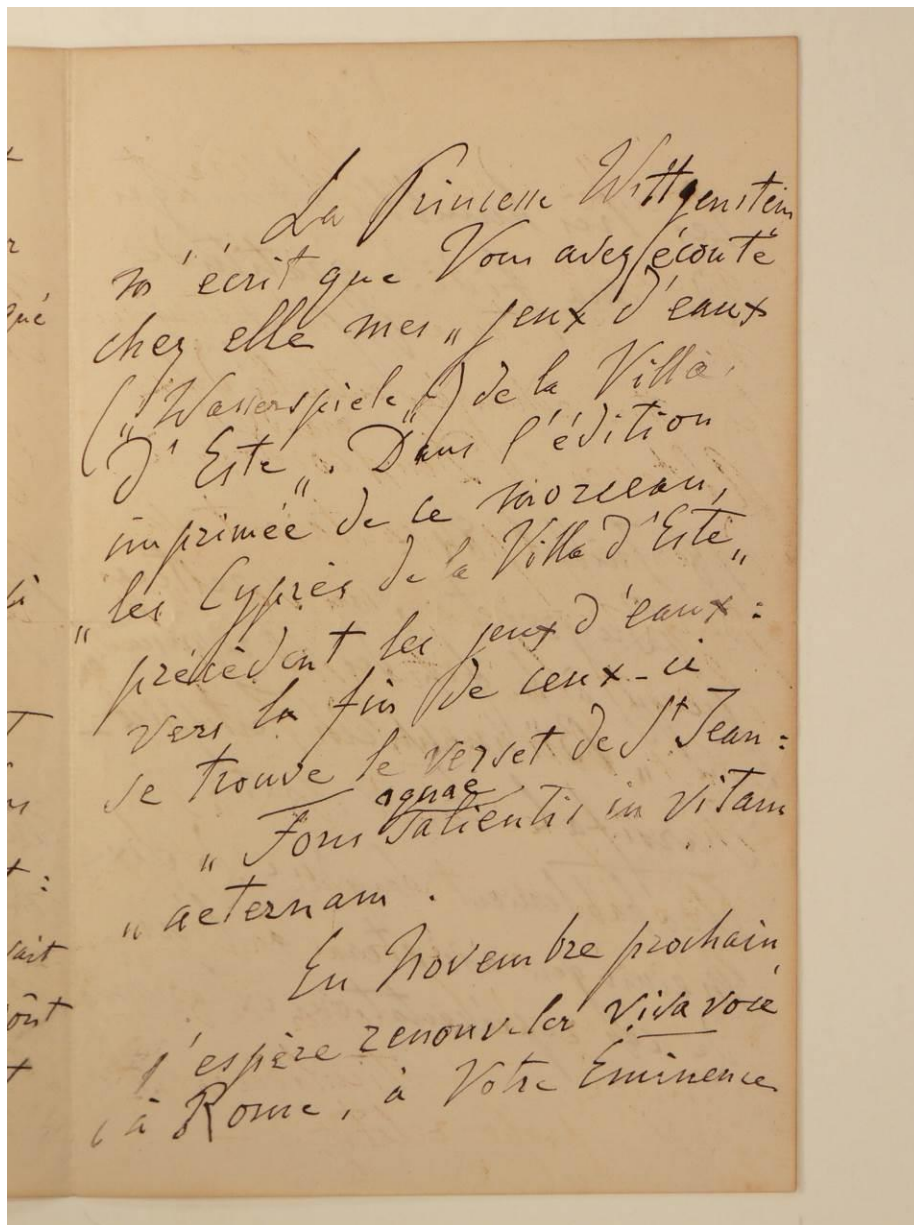 La Princesse Wittgenstein
m'écrit que Vous avez écouté
chez elle mes „jeux d'eaux
(„Wasserspiele„) de la Villa
d'Este„. Dans l'édition
imprimée de ce morceau,
„les Cyprès de la Villa d'Este„
précèdent les jeux d'eaux:
vers la fin de ceux-ci
se trouve le verset de St Jean:
aquae
„Fons salientis in vitam
„aeternam.
En Novembre prochain
j'espère renouveler viva voce
à Rome, à Votre Éminence